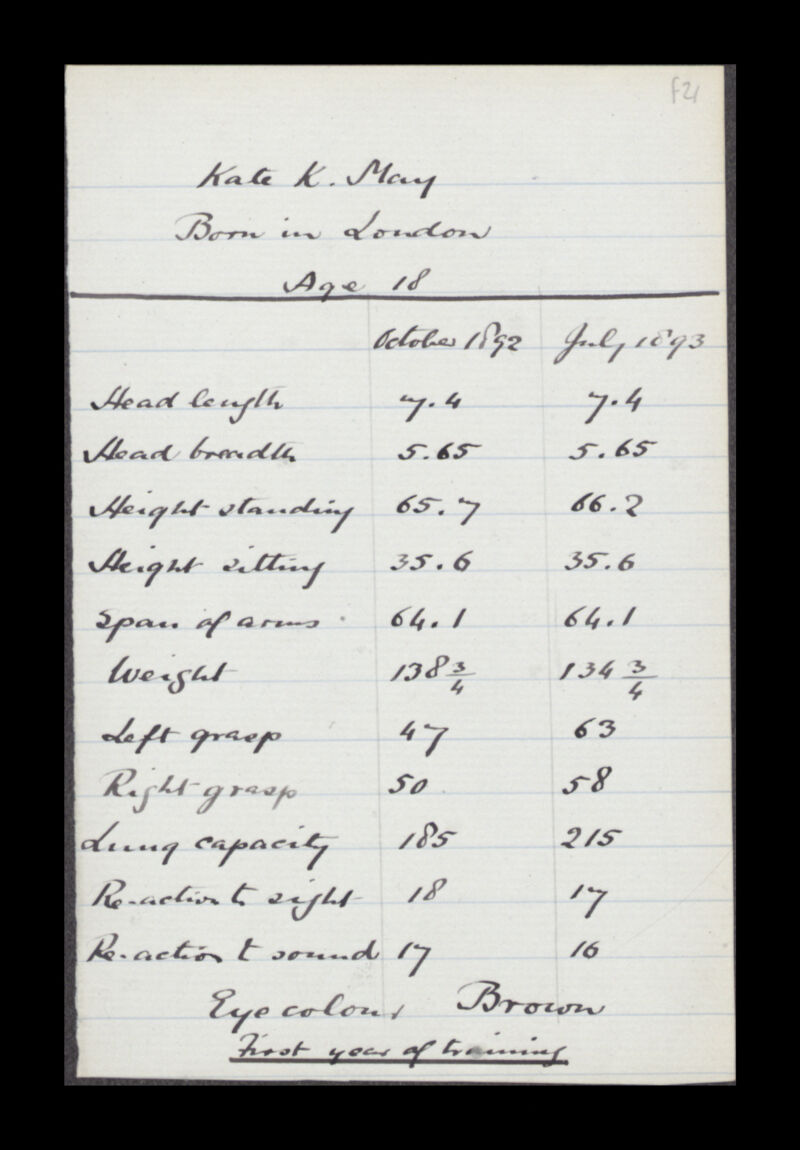 f21
Kate K. May
Born in London
Age 18
October 1892 July 1893
Head length 7.4 7.4
Head breadth 5.65 5.65
Height standing 65.7 66.2
Height sitting 35.6 35.6
Span of arms 64.1 64.1
Weight 138 3/4 134 3/4
Left grasp 47 63
Right grasp 50 58
Lung capacity 185 215
Re-action to sight 18 17
Re-action to sound 17 16
Eye colour Brown
First year of training